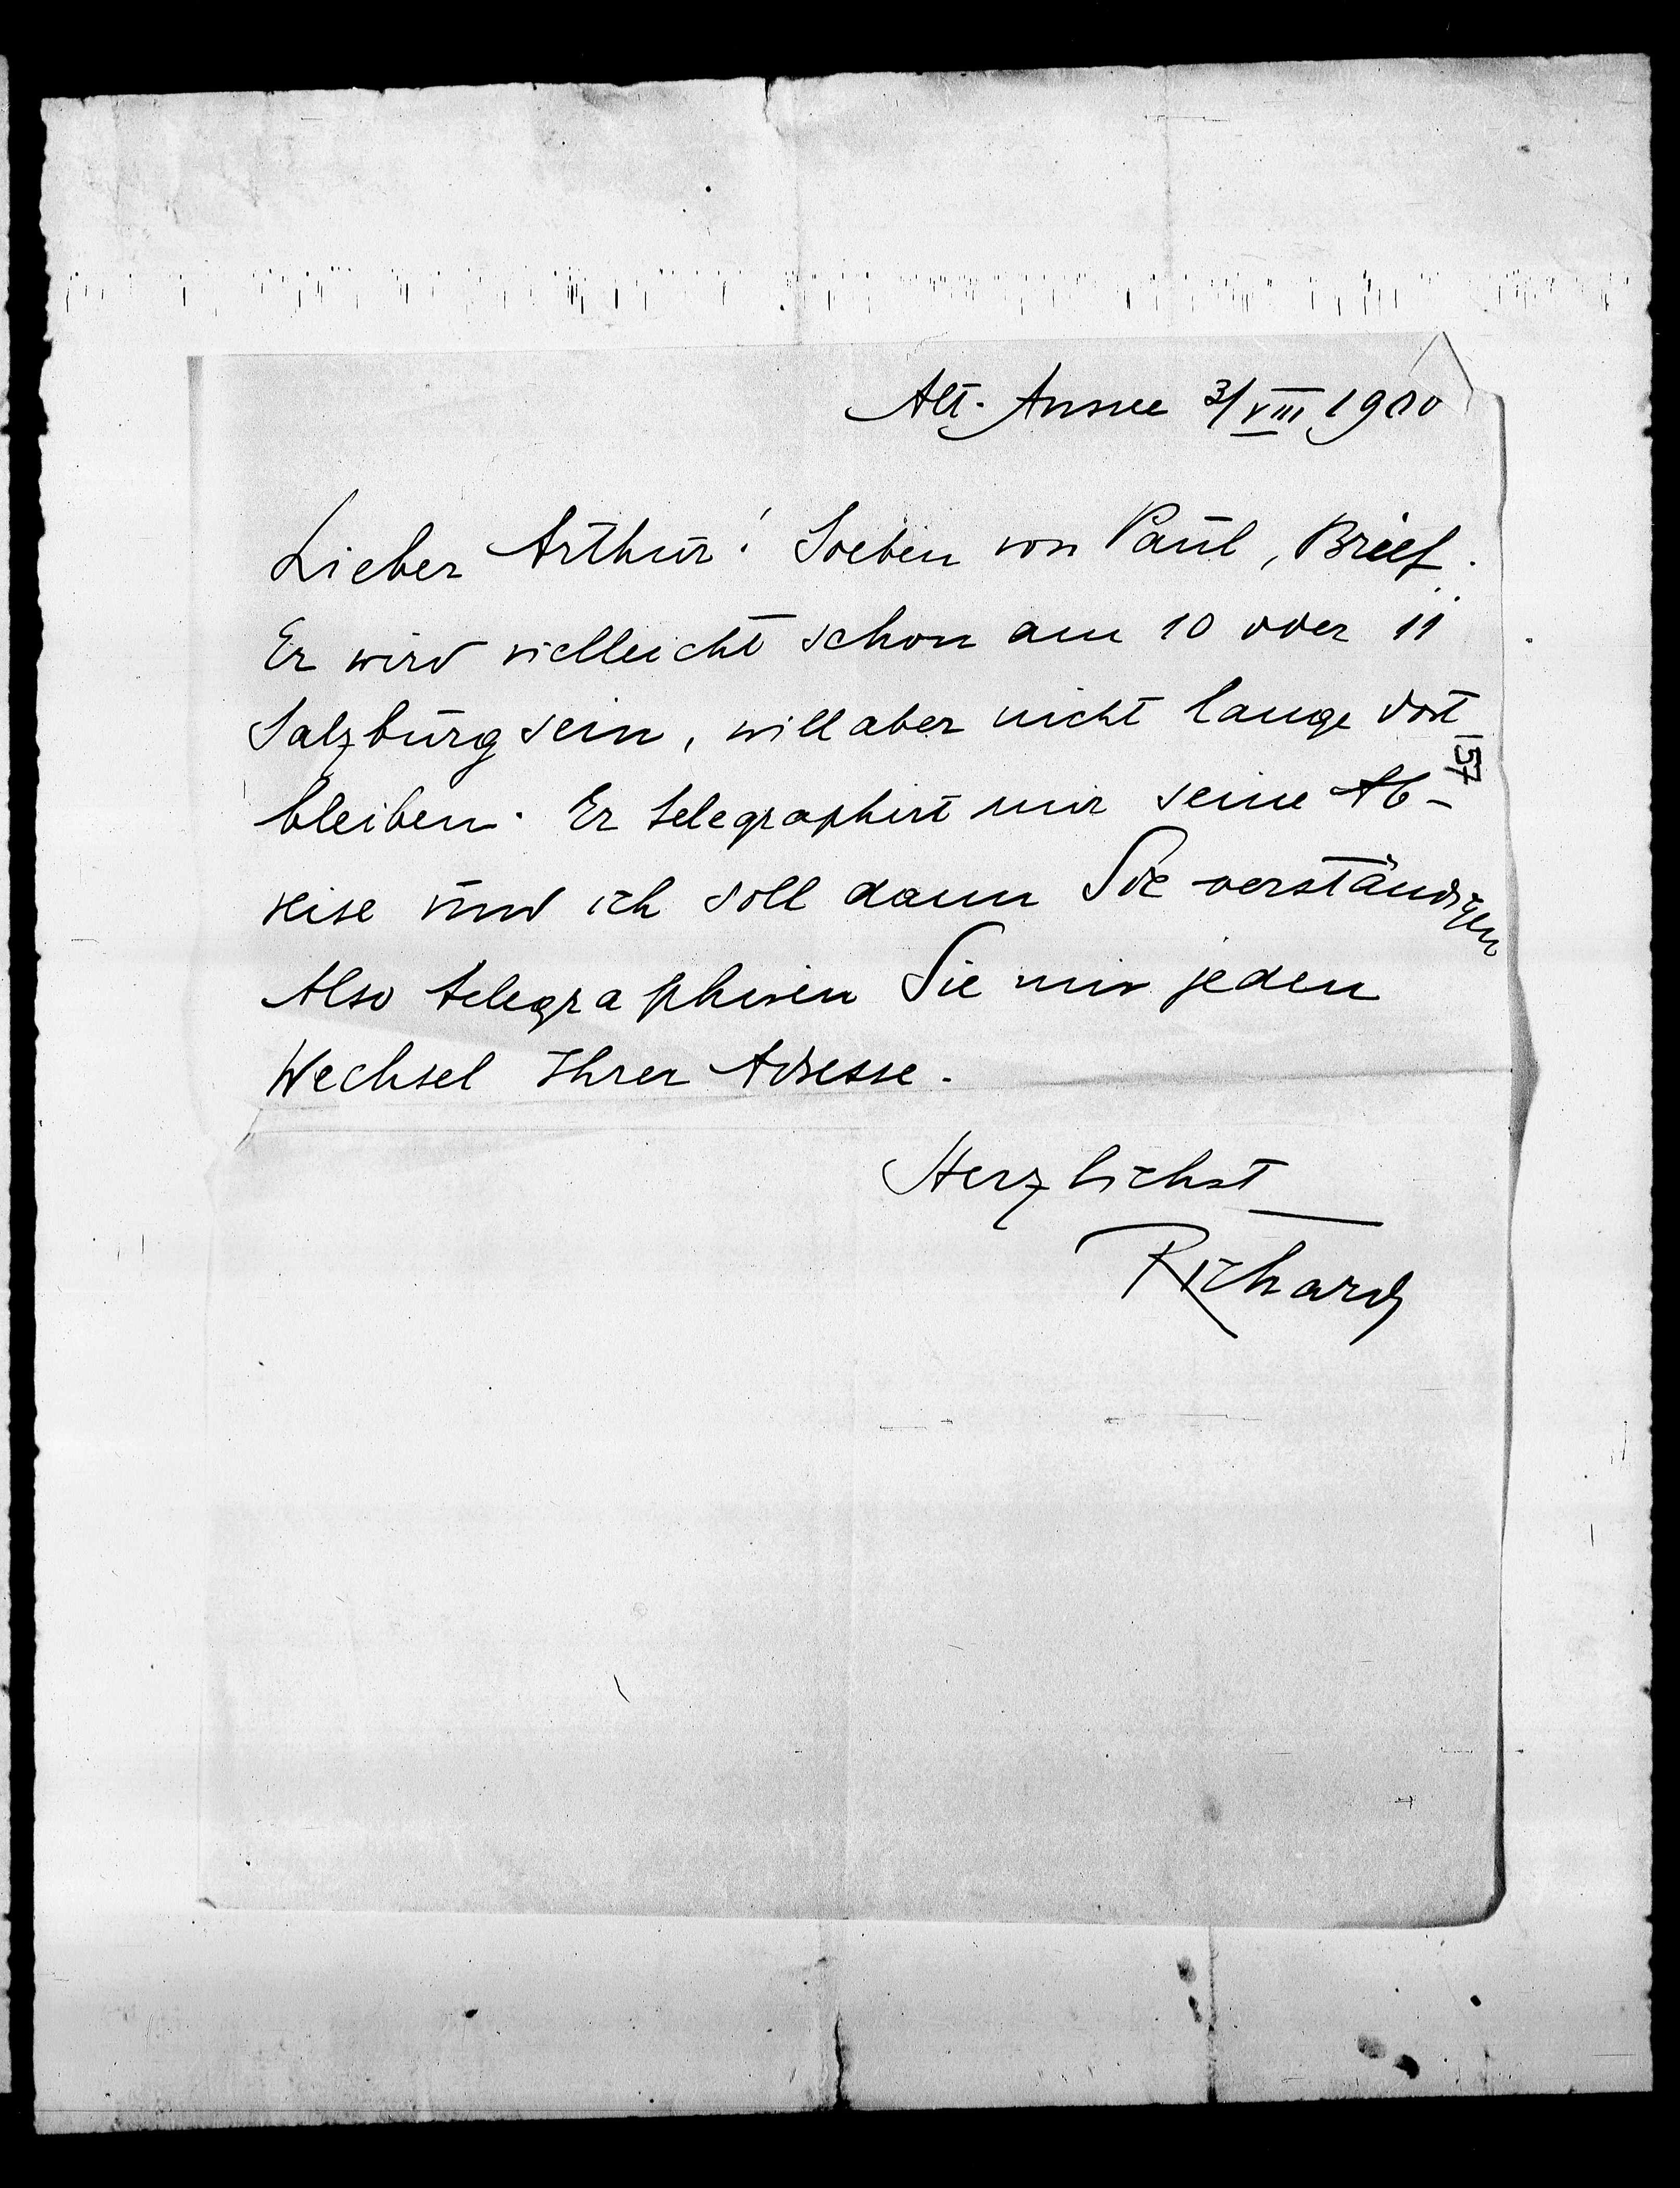 Alt-Aussee 3/VIII 1900
Lieber Arthur! Soeben von Paul, Brief.
Er wird vielleicht schon am 10 oder 11
Salzburg sein, will aber nicht lange dort
157
bleiben. Er telegraphirt mir seine Ab-
reise und ich soll dann Sie verständigen
Also telegraphiren Sie mir jeden
Wechsel Ihrer Adresse.
Herzlichst
Richard